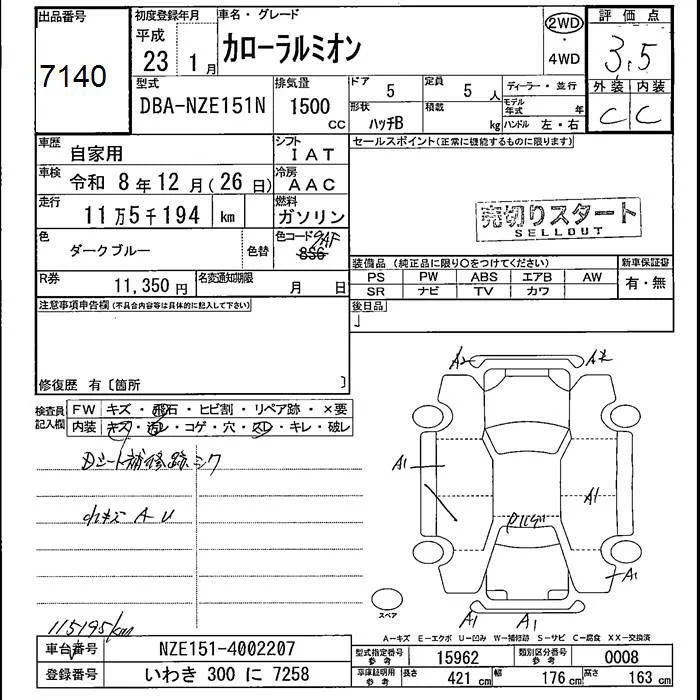 出品番号
7140
初度登録年月
平成
23 1月
車名・グレード
カローラルミオン
2WD
・
4WD
評価点
3.5
外装 内装
C C
型式
DBA-NZE151N
排気量
1500
CC
ドア
5
定員
5 人
ディーラー・並行
形状
ハッチB
積載
kg
モデル年式 年
ハンドル 左・右
車歴
自家用
シフト
IAT
セールスポイント(正常に機能するものに限ります)
車検
令和 8年12月(26日)
冷房
AAC
走行
11万5千194 km
燃料
ガソリン
売切りスタート
SELLOUT
色
ダークブルー
色替
色コード
9AF
8S6
装備品 (純正品に限り○をつけてください)
新車保証書
PS PW ABS エアB AW
有・無
SR ナビ TV カワ
R券
11,350円
名変通知期限
月 日
後日品
注意事項申告欄(不具合内容等は具体的に記入して下さい)
修復歴 有〔箇所 〕
検査員記入欄
FW キズ・飛石・ヒビ割・リペア跡・×要
内装 キズ・汚レ・コゲ・穴・スレ・キレ・破レ
Dシート補修跡シワ
小キズ A U
115195km
A2 A2
A1
A1
A1
A1 A1
スペア
A-キズ E-エクボ U-凹み W-補修跡 S-サビ C-腐食 XX-交換済
車台番号
NZE151-4002207
登録番号
いわき 300 に 7258
型式指定番号
参考
15962
類別区分番号
参考
0008
車庫証明用
参考
長さ
421 cm
幅
176 cm
高さ
163 cm